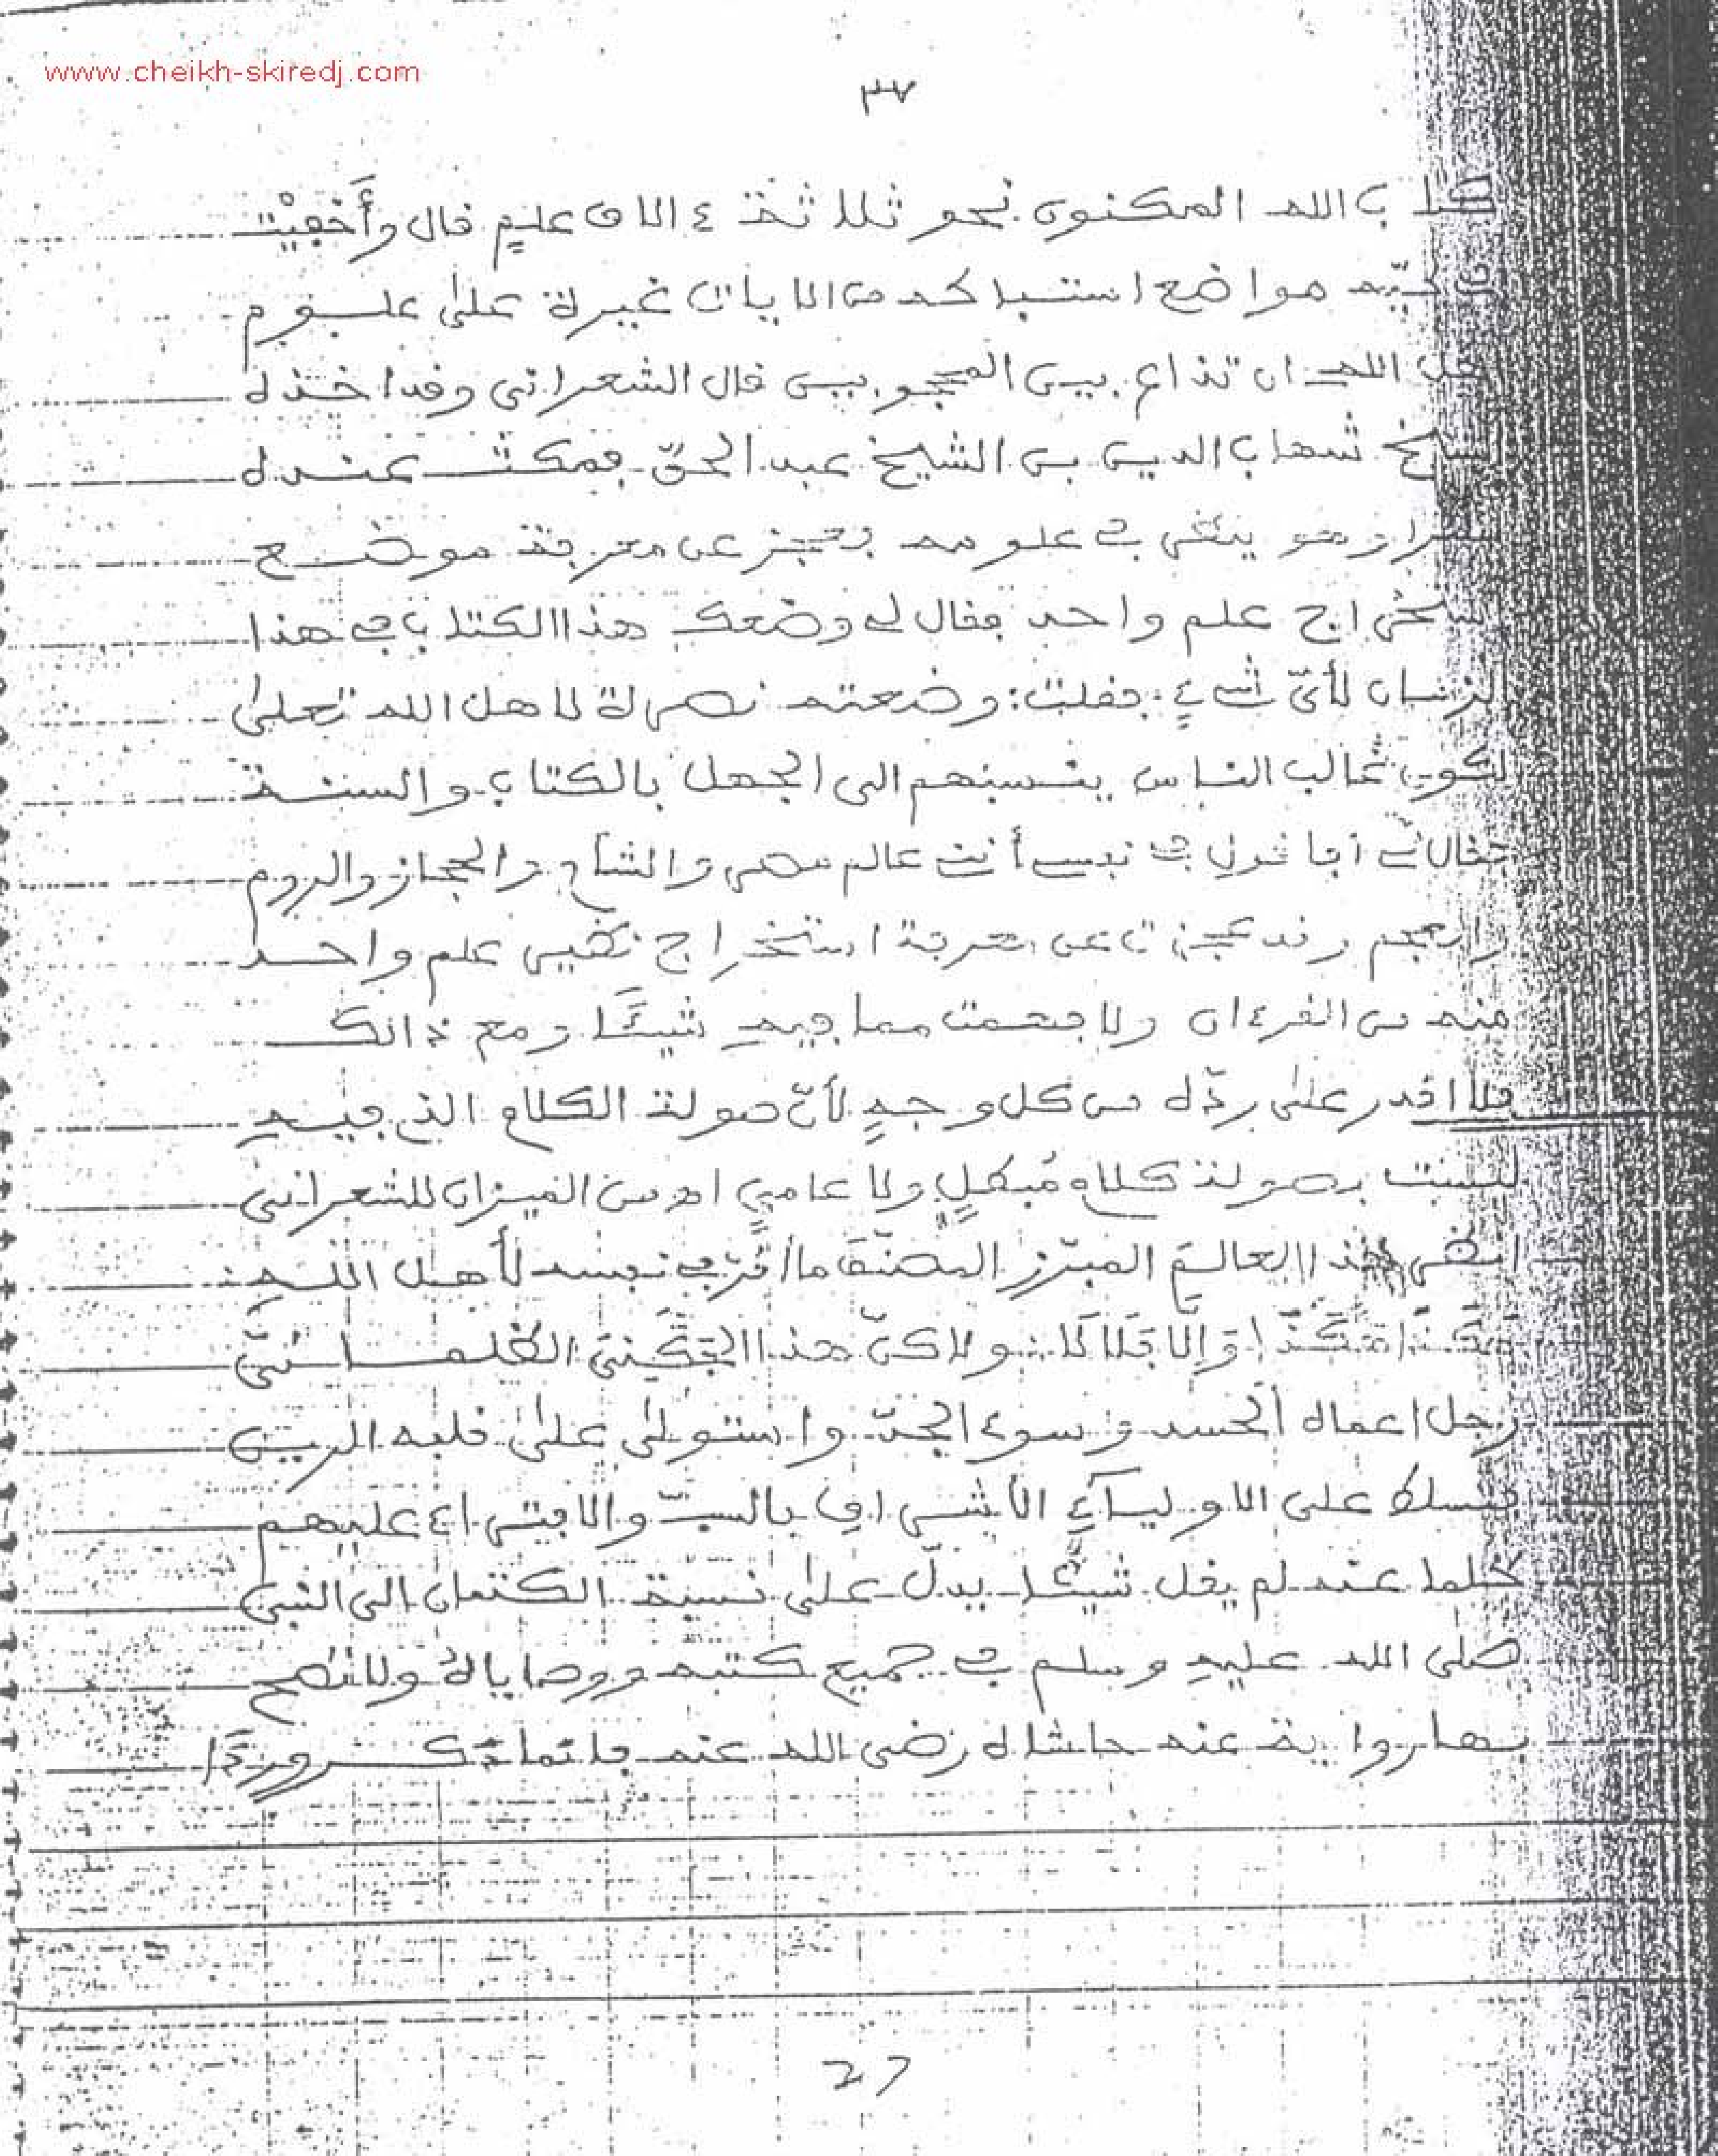 www.cheikh-skiredj.com
٣٧
كتاب الله المكنون نحو ثلاثة ءالاف علم قال وأخفيت
فيه مواضع استنباطه من الايات غيرة على علوم
أهل الله ان تذاع بين المحجوبين قال الشعراني وقد اخذه
الشيخ شهاب الدين بن الشيخ عبد الحق فمكث عنده
شهرا وهو ينظر في علومه فعجز عن معرفة موضع
استخراج علم واحد فقال لي وضعك هذا الكتاب في هذا
الزمان لأي شيء: فقلت: وضعته نصرة لاهل الله تعلى
لكون غالب الناس ينسبهم الى الجهل بالكتاب والسنة
فقال لي انا نقول في نفسي أننى عالم مصر والشام والحجاز والروم
والعجم وقد عجزت عن معرفة استخراج نظير علم واحد
منه من القرءان ولا فهمت مما فيه شيئا ومع ذالك
فلا اقدر على رده من كل وجه لأن صولة الكلام الذي فيه
ليست بصولة كلام مبطل ولا عامي اه من الميزان للشعراني
انظر هذا العالم المبرز المصنف ما أقر في نفسه لأهل الله
هكذا هكذا وإلا فلا لا: ولاكن هذا الظلماني
رجل اعماه الحسد وسوء الجد واستولى على قلبه الرين
فتسلط على الاولياء الأشراف بالسب والافتراء عليهم
عنه لم يقل شيئا يدل على نسبة الكتمان الى النبي
صلى الله عليه وسلم في جميع كتبه ووصاياه ولا تصح
بها رواية عنه حاشاه رضي الله عنه فانما ذكر وردا
27